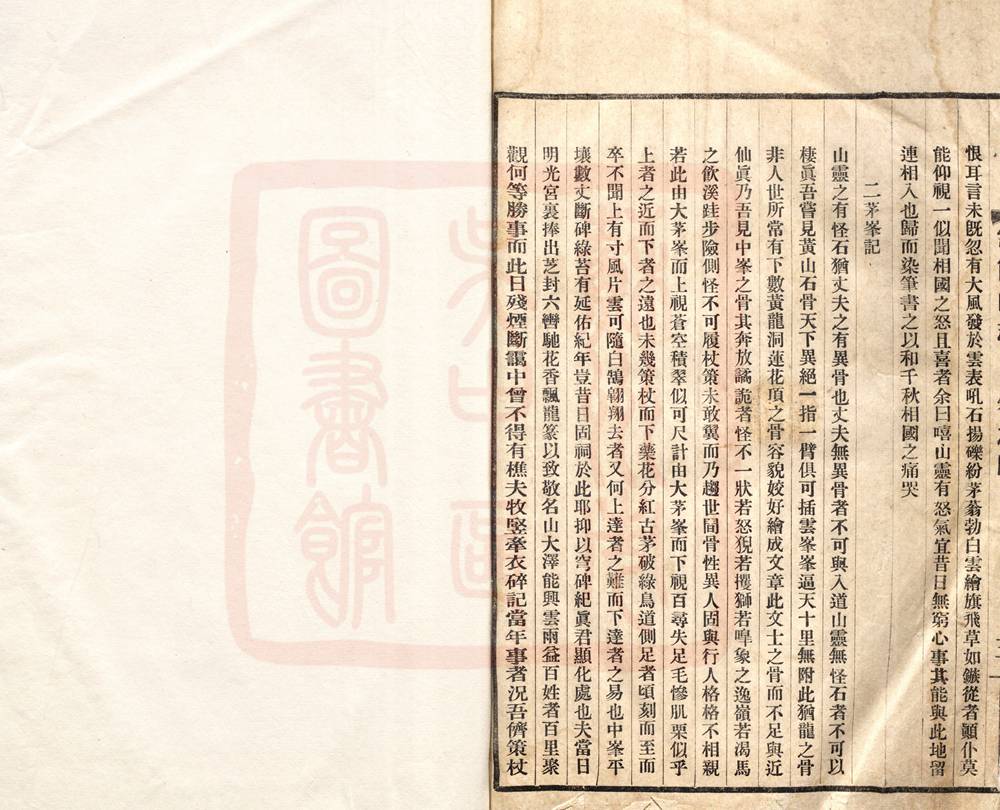 恨耳言未既忽有大風發於雲表吼石揚礫紛茅蓊勃白雲繪旗飛草如鏃從者顫仆莫
能仰視一似聞相國之怒且喜者余曰嘻山靈有怒氣宜昔日無窮心事其能與此地留
連相入也歸而染筆書之以和千秋相國之痛哭
二茅峯記
山靈之有怪石猶丈夫之有異骨也丈夫無異骨者不可與入道山靈無怪石者不可以
棲眞吾嘗見黃山石骨天下異絕一指一臂俱可插雲峯峯逼天十里無附此猶龍之骨
非人世所常有下數黃龍洞蓮花頂之骨容貌姣好繪成文章此文士之骨而不足與近
仙眞乃吾見中峯之骨其奔放譎詭者怪不一狀若怒猊若攫獅若嘷象之逸嶺若渴馬
之飲溪跬步險側怪不可履杖策未敢翼而乃趨世間骨性異人固與行人格格不相親
若此由大茅峯而上視蒼空積翠似可尺計由大茅峯而下視百尋失足毛慘肌栗似乎
上者之近而下者之遠也未幾策杖而下藥花分紅古茅破綠鳥道側足者頃刻而至而
卒不聞上有寸風片雲可隨白鵠翱翔去者又何上達者之難而下達者之易也中峯平
壤數丈斷碑綠苔有延佑紀年豈昔日固祠於此耶抑以穹碑紀眞君顯化處也夫當日
明光宮裏捧出芝封六轡馳花香飄龍篆以致敬名山大澤能興雲雨益百姓者百里聚
觀何等勝事而此日殘煙斷靄中曾不得有樵夫牧豎牽衣碎記當年事者況吾儕策杖
圖書館